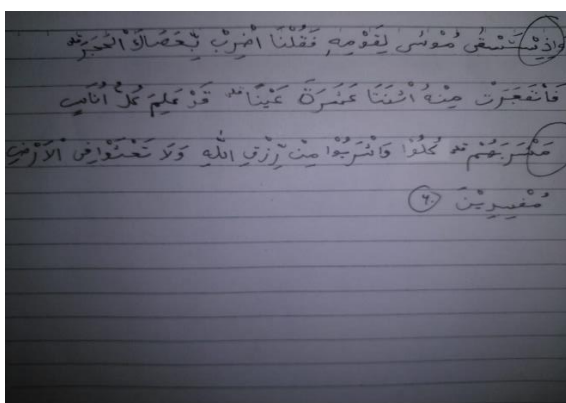 وَاِذِسْتَسْقٰى مُوْسٰى لِقَوْمِهٖ فَقُلْنَا اضْرِبْ بِّعَصَاكَ الْحَجَرَۗ
فَانْفَجَرَتْ مِنْهُ اثْنَتَا عَشْرَةَ عَيْنًاۗ قَدْ عَلِمَ كُلُّ اُنَاسٍ
مَّشْرَبَهُمْۗ كُلُوْا وَاشْرَبُوْا مِنْ رِّزْقِ اللّٰهِ وَلَا تَعْثَوْا فِى الْاَرْضِ
مُفْسِدِيْنَ ٦٠